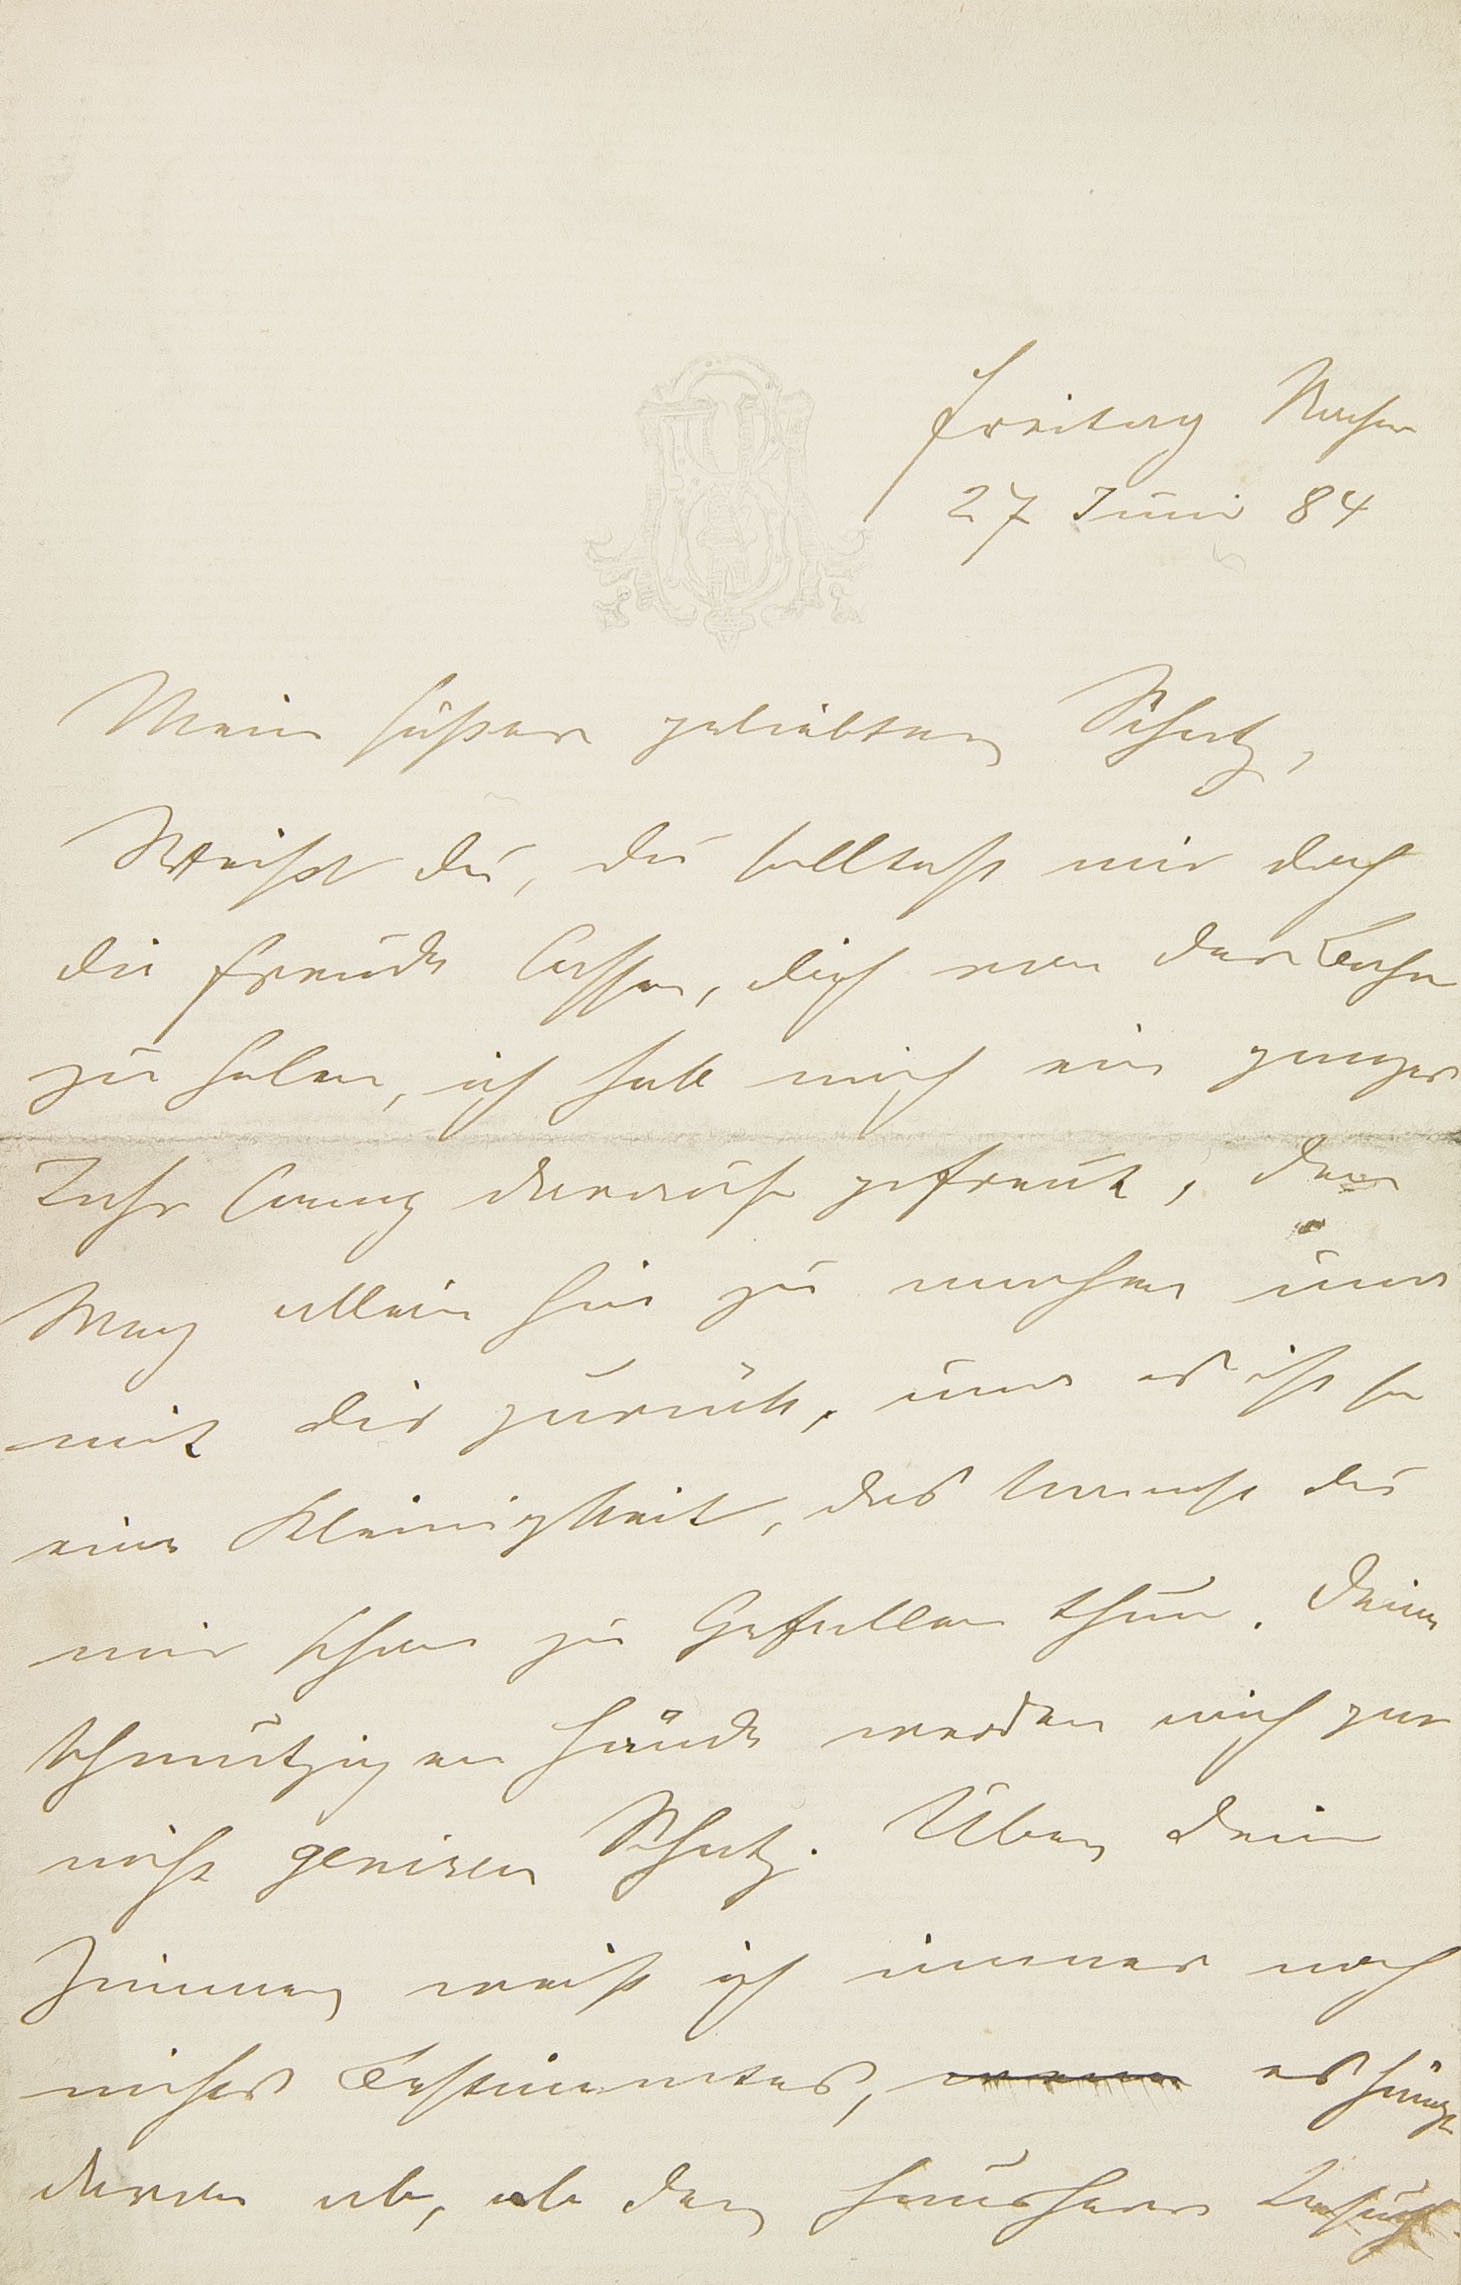 Freitag Nachm
27 Juni 84
Mein süßer geliebter Schatz,
Weißt du, du solltest mir doch
die Freude lassen, dich von der Bahn
zu holen, ich hab mich ein ganzes
Jahr lang darauf gefreut, den
Weg allein hin zu machen und
mit dir zurück, und es ist so
eine Kleinigkeit, das kannst du
mir schon zu Gefallen thun. Deine
schmutzigen Hände werden mich gar
nicht geniren Schatz. Über dein
Zimmer weiß ich immer noch
nichts Bestimmtes, es hängt
davon ab, ob der Hausherr Besuch